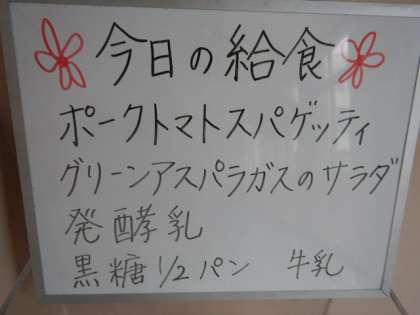 今日の給食
ポークトマトスパゲッティ
グリーンアスパラガスのサラダ
発酵乳
黒糖1/2パン 牛乳